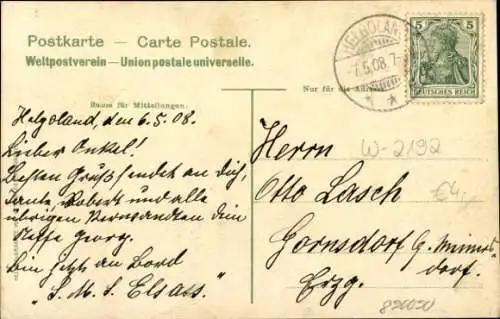 Postkarte — Carte Postale.
Weltpostverein — Union postale universelle.
Raum für Mitteilungen.
Nur für die Adresse.
HELGOLAND
7.5.08.7-
5 5
DEUTSCHES REICH
Helgoland, den 6.5.08.
Lieber Onkel!
Besten Gruß sendet an dich,
Tante, Robert und alle
übrigen Verwandten dein
Neffe Georg.
Bin jetzt an Bord
"S.M.S. Elsass."
Herrn
W-2192
Otto Lasch
€4,-
Gornsdorf b.
dorf.
Erzg.